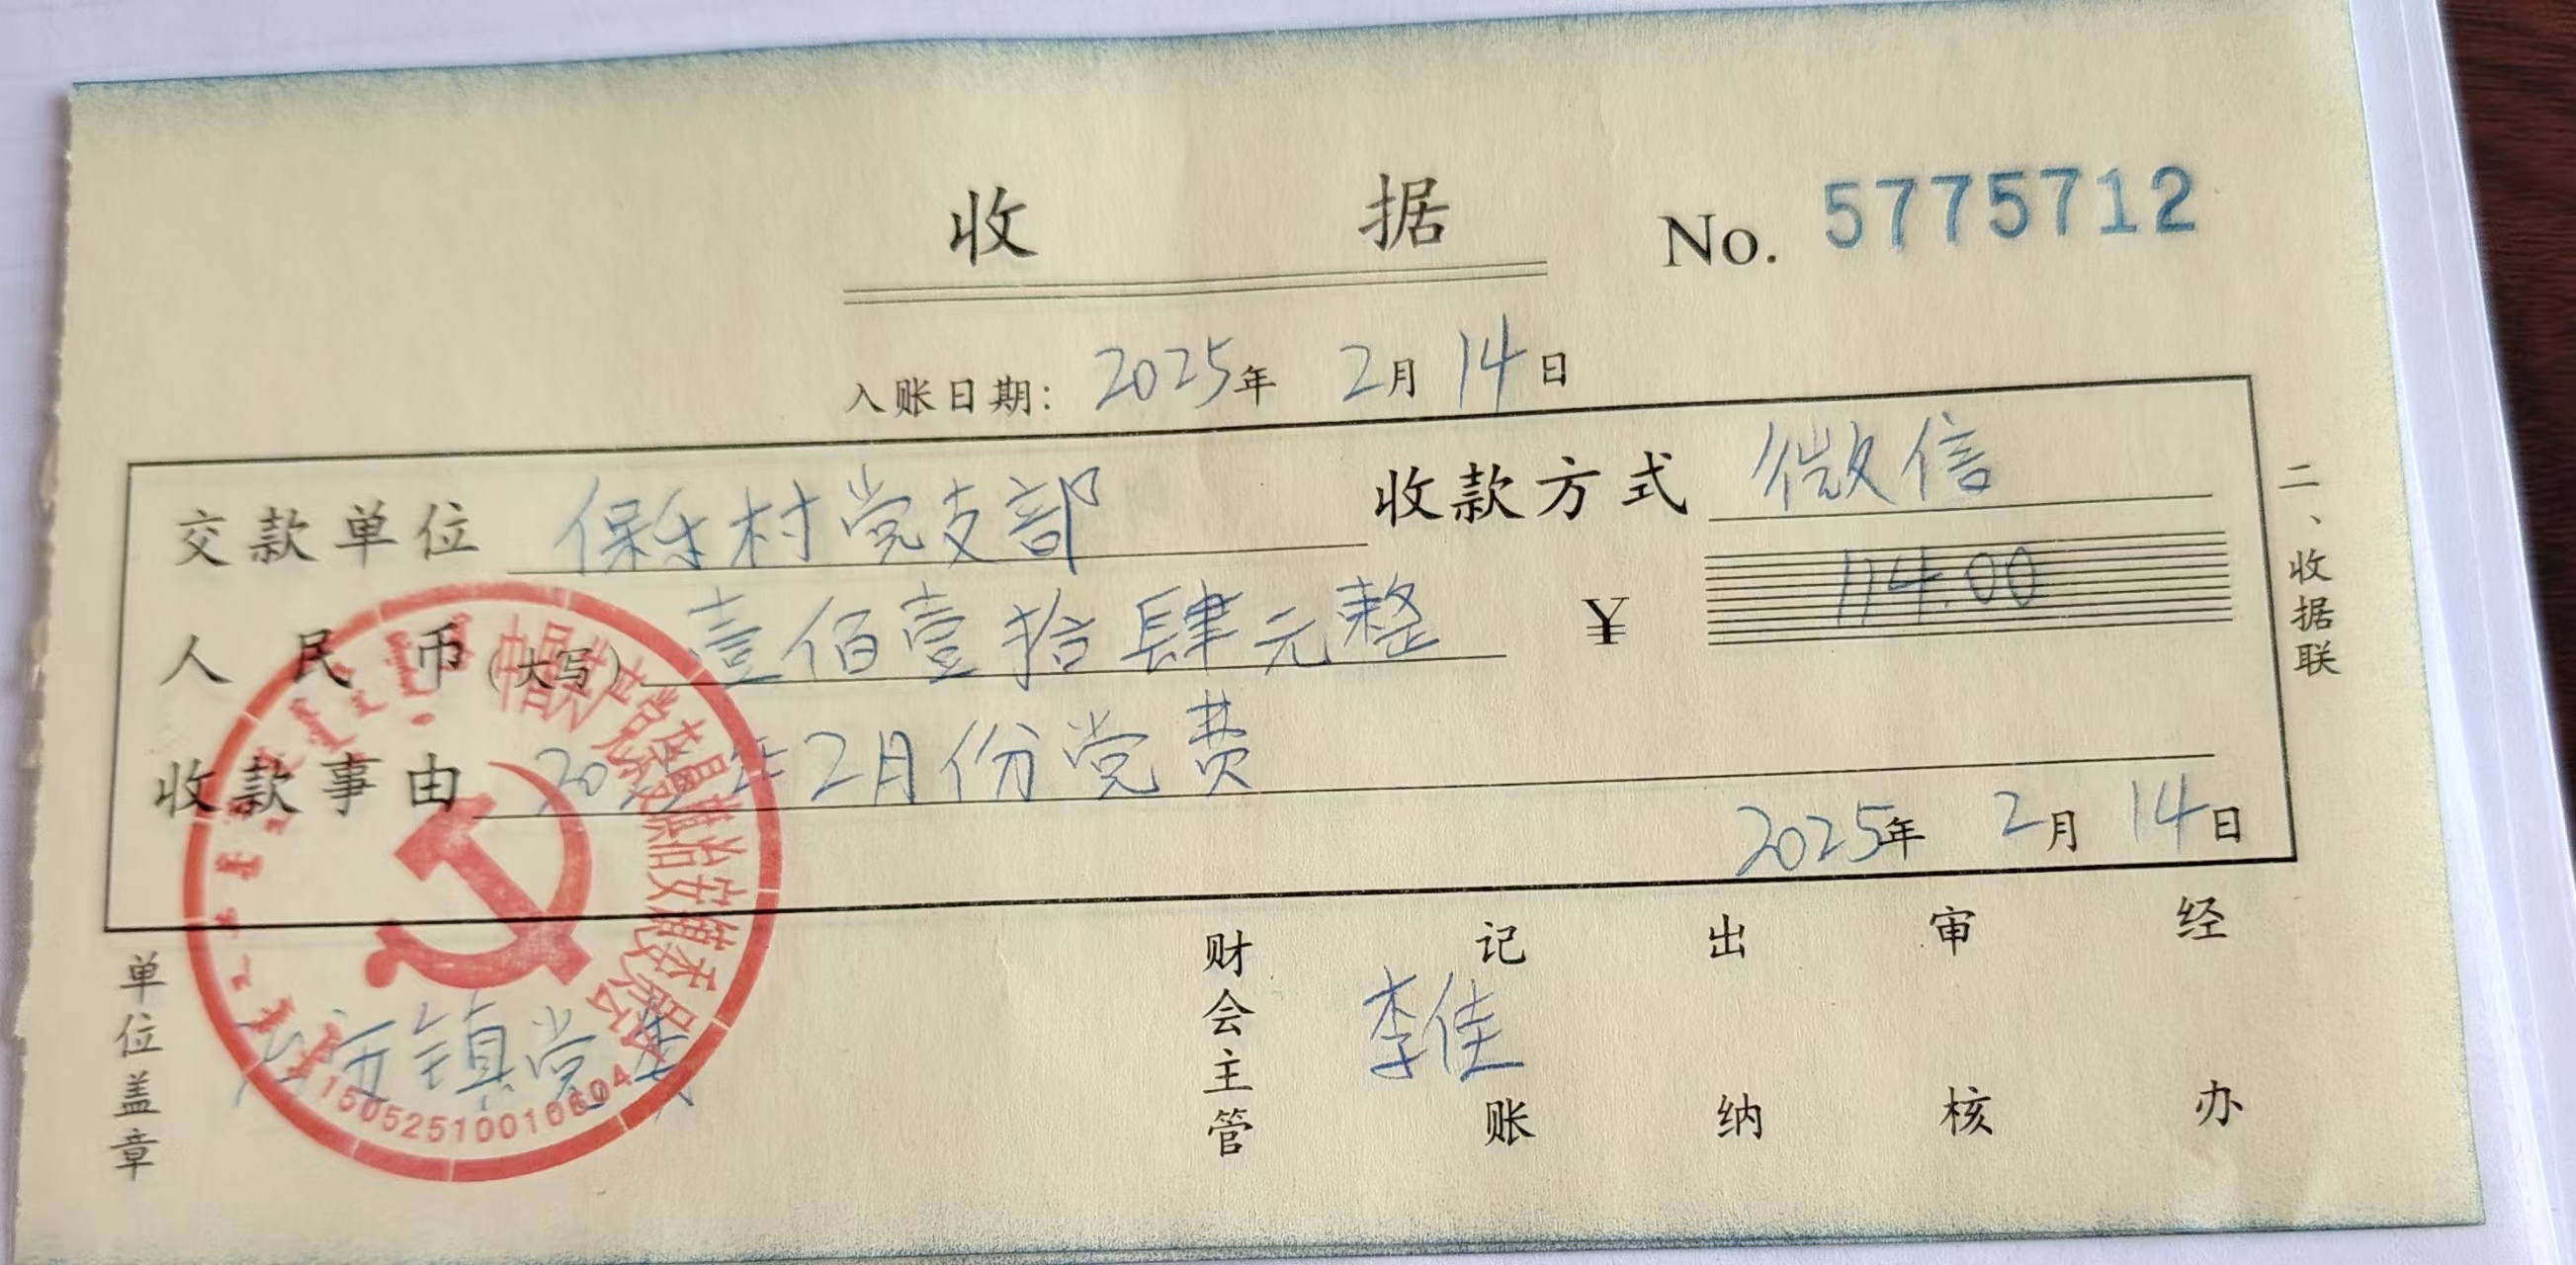 收 据 No. 5775712
入账日期： 2025年 2月 14日
交款单位 保乐村党支部 收款方式 微信
人民币（大写） 壹佰壹拾肆元整 ¥ 114.00
收款事由 2025年2月份党费
2025年 2月 14日
二、收据联
单位盖章 治安镇党委
财会主管 记账 李佳 出纳 审核 经办
中国共产党奈曼旗治安镇委员会